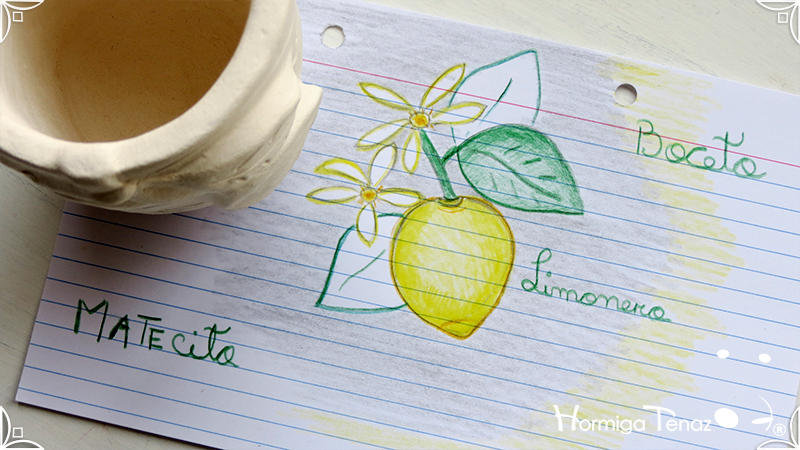 Boceto
Limonero
MATEcito
Hormiga Tenaz ®